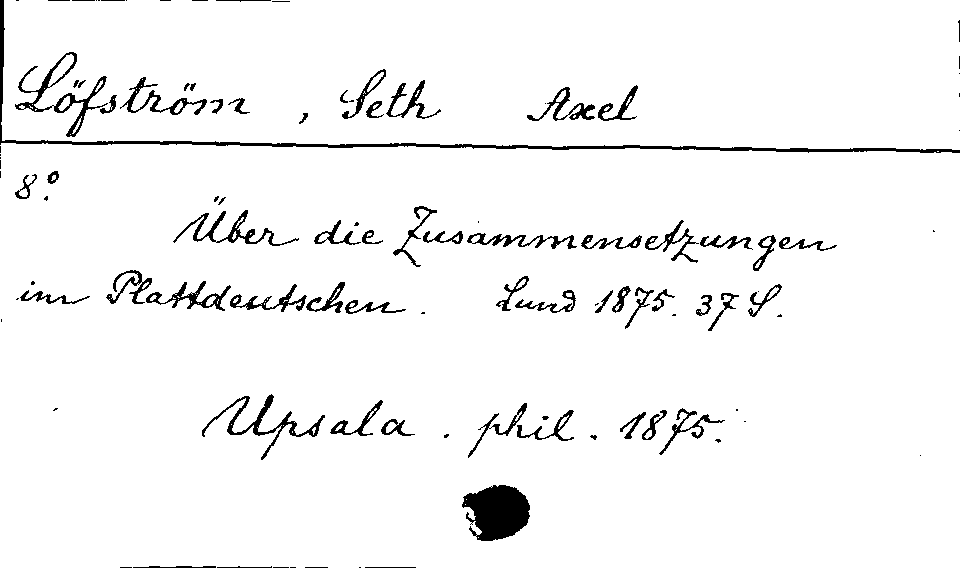 Löfström, Seth Axel
8°.
Über die Zusammensetzungen
im Plattdeutschen. Lund 1875. 37 S.
Upsala. phil. 1875.